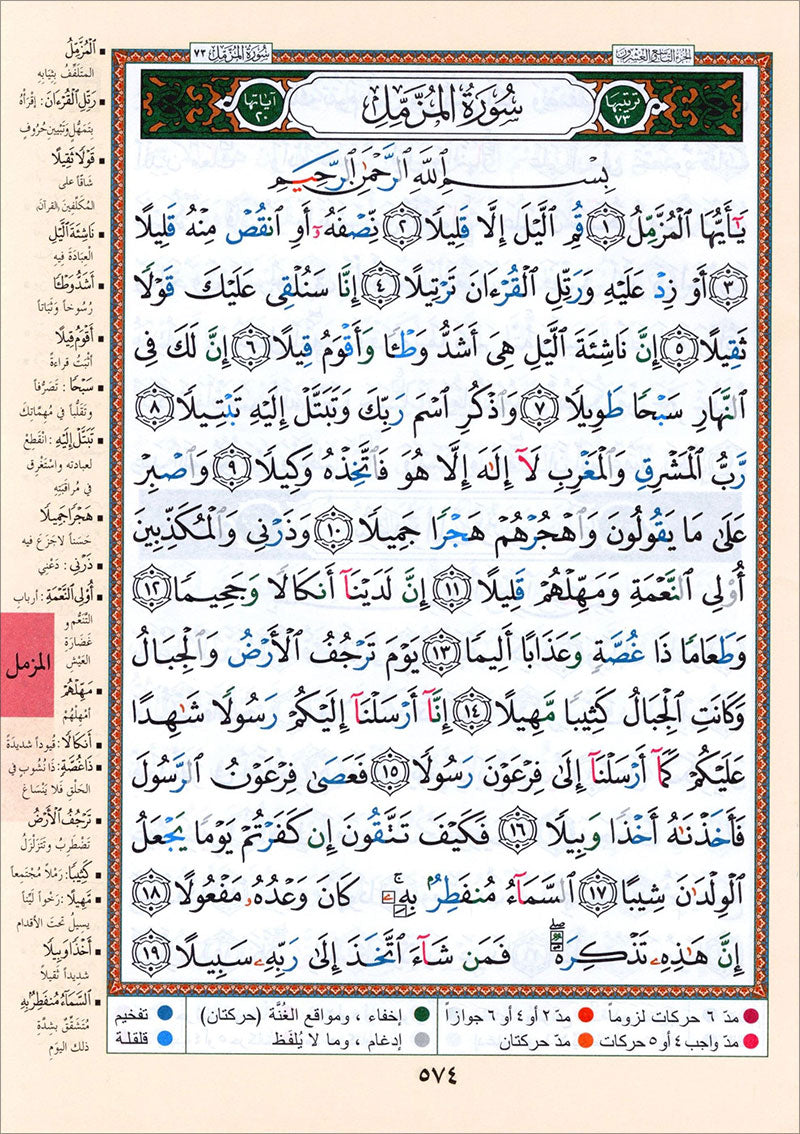 الجزء التاسع والعشرون
سُورَةُ المُزَّمِّل ٧٣
ترتيبها ٧٣
سُورَةُ الْمُزَّمِّلِ
آياتها ٢٠
بِسْمِ ٱللَّهِ ٱلرَّحْمَٰنِ ٱلرَّحِيمِ
يَٰٓأَيُّهَا ٱلْمُزَّمِّلُ ١ قُمِ ٱلَّيْلَ إِلَّا قَلِيلًا ٢ نِّصْفَهُۥٓ أَوِ ٱنقُصْ مِنْهُ قَلِيلًا
٣ أَوْ زِدْ عَلَيْهِ وَرَتِّلِ ٱلْقُرْءَانَ تَرْتِيلًا ٤ إِنَّا سَنُلْقِى عَلَيْكَ قَوْلًا
ثَقِيلًا ٥ إِنَّ نَاشِئَةَ ٱلَّيْلِ هِىَ أَشَدُّ وَطْـًٔا وَأَقْوَمُ قِيلًا ٦ إِنَّ لَكَ فِى
ٱلنَّهَارِ سَبْحًا طَوِيلًا ٧ وَٱذْكُرِ ٱسْمَ رَبِّكَ وَتَبَتَّلْ إِلَيْهِ تَبْتِيلًا ٨
رَّبُّ ٱلْمَشْرِقِ وَٱلْمَغْرِبِ لَآ إِلَٰهَ إِلَّا هُوَ فَٱتَّخِذْهُ وَكِيلًا ٩ وَٱصْبِرْ
عَلَىٰ مَا يَقُولُونَ وَٱهْجُرْهُمْ هَجْرًا جَمِيلًا ١٠ وَذَرْنِى وَٱلْمُكَذِّبِينَ
أُو۟لِى ٱلنَّعْمَةِ وَمَهِّلْهُمْ قَلِيلًا ١١ إِنَّ لَدَيْنَآ أَنكَالًا وَجَحِيمًا ١٢
وَطَعَامًا ذَا غُصَّةٍ وَعَذَابًا أَلِيمًا ١٣ يَوْمَ تَرْجُفُ ٱلْأَرْضُ وَٱلْجِبَالُ
وَكَانَتِ ٱلْجِبَالُ كَثِيبًا مَّهِيلًا ١٤ إِنَّآ أَرْسَلْنَآ إِلَيْكُمْ رَسُولًا شَٰهِدًا
عَلَيْكُمْ كَمَآ أَرْسَلْنَآ إِلَىٰ فِرْعَوْنَ رَسُولًا ١٥ فَعَصَىٰ فِرْعَوْنُ ٱلرَّسُولَ
فَأَخَذْنَٰهُ أَخْذًا وَبِيلًا ١٦ فَكَيْفَ تَتَّقُونَ إِن كَفَرْتُمْ يَوْمًا يَجْعَلُ
ٱلْوِلْدَٰنَ شِيبًا ١٧ ٱلسَّمَآءُ مُنفَطِرٌۢ بِهِۦ ۚ كَانَ وَعْدُهُۥ مَفْعُولًا ١٨
إِنَّ هَٰذِهِۦ تَذْكِرَةٌ ۖ فَمَن شَآءَ ٱتَّخَذَ إِلَىٰ رَبِّهِۦ سَبِيلًا ١٩
الْمُزَّمِّلُ
المتَلَفِّفُ بِثِيَابِهِ
رَتِّلِ الْقُرْءَانَ : اِقْرَأْهُ
بِتَمَهُّلٍ وَتَبْيِينِ حُرُوفٍ
قَوْلًا ثَقِيلًا
شَاقّاً على
المُكَلَّفين بالقرآن
نَاشِئَةَ الَّيْلِ
العِبَادَةُ فِيهِ
أَشَدُّ وَطْئًا
رُسُوخاً وَثَبَاتاً
أَقْوَمُ قِيلًا
أَثْبَتُ قِراءةً
سَبْحًا : تَصَرُّفاً
وتَقَلُّباً في مُهِمَّاتِكَ
تَبَتَّلْ إِلَيْهِ : انْقَطِعْ
لعبادته واسْتَغْرِق
في مُراقَبَتِهِ
هَجْرًا جَمِيلًا
حَسَناً لا جَزَعَ فيه
ذَرْنِي : دَعْنِي
أُولِي النَّعْمَةِ : أربابِ
التَّنَعُّمِ و
غَضَارَةِ
العَيْشِ
مَهِّلْهُمْ
أَمْهِلْهُمْ
أَنكَالًا : قُيُوداً شديدةً
ذَا غُصَّةٍ : ذَا نُشُوبٍ في
الحَلْقِ فَلا يَنْسَاغ
تَرْجُفُ الْأَرْضُ
تَضْطَرِبُ وتَتَزَلْزَلُ
كَثِيبًا : رَمْلاً مُجْتَمِعاً
مَهِيلًا : رَخْواً لَيِّناً
يسيلُ تحتَ الأقدام
أَخْذًا وَبِيلًا
شديداً ثَقِيلاً
السَّمَاءُ مُنفَطِرٌ بِهِ
مُتَشَقِّقٌ بِشدَّةِ
ذلك اليومِ
المزمل
مدّ ٦ حركات لزوماً
مدّ ٢ أو ٤ أو ٦ جوازاً
إخفاء، ومواقع الغُنَّة (حركتان)
تفخيم
مدّ واجب ٤ أو ٥ حركات
مدّ حركتان
إدغام، وما لا يُلفَظ
قلقلة
٥٧٤